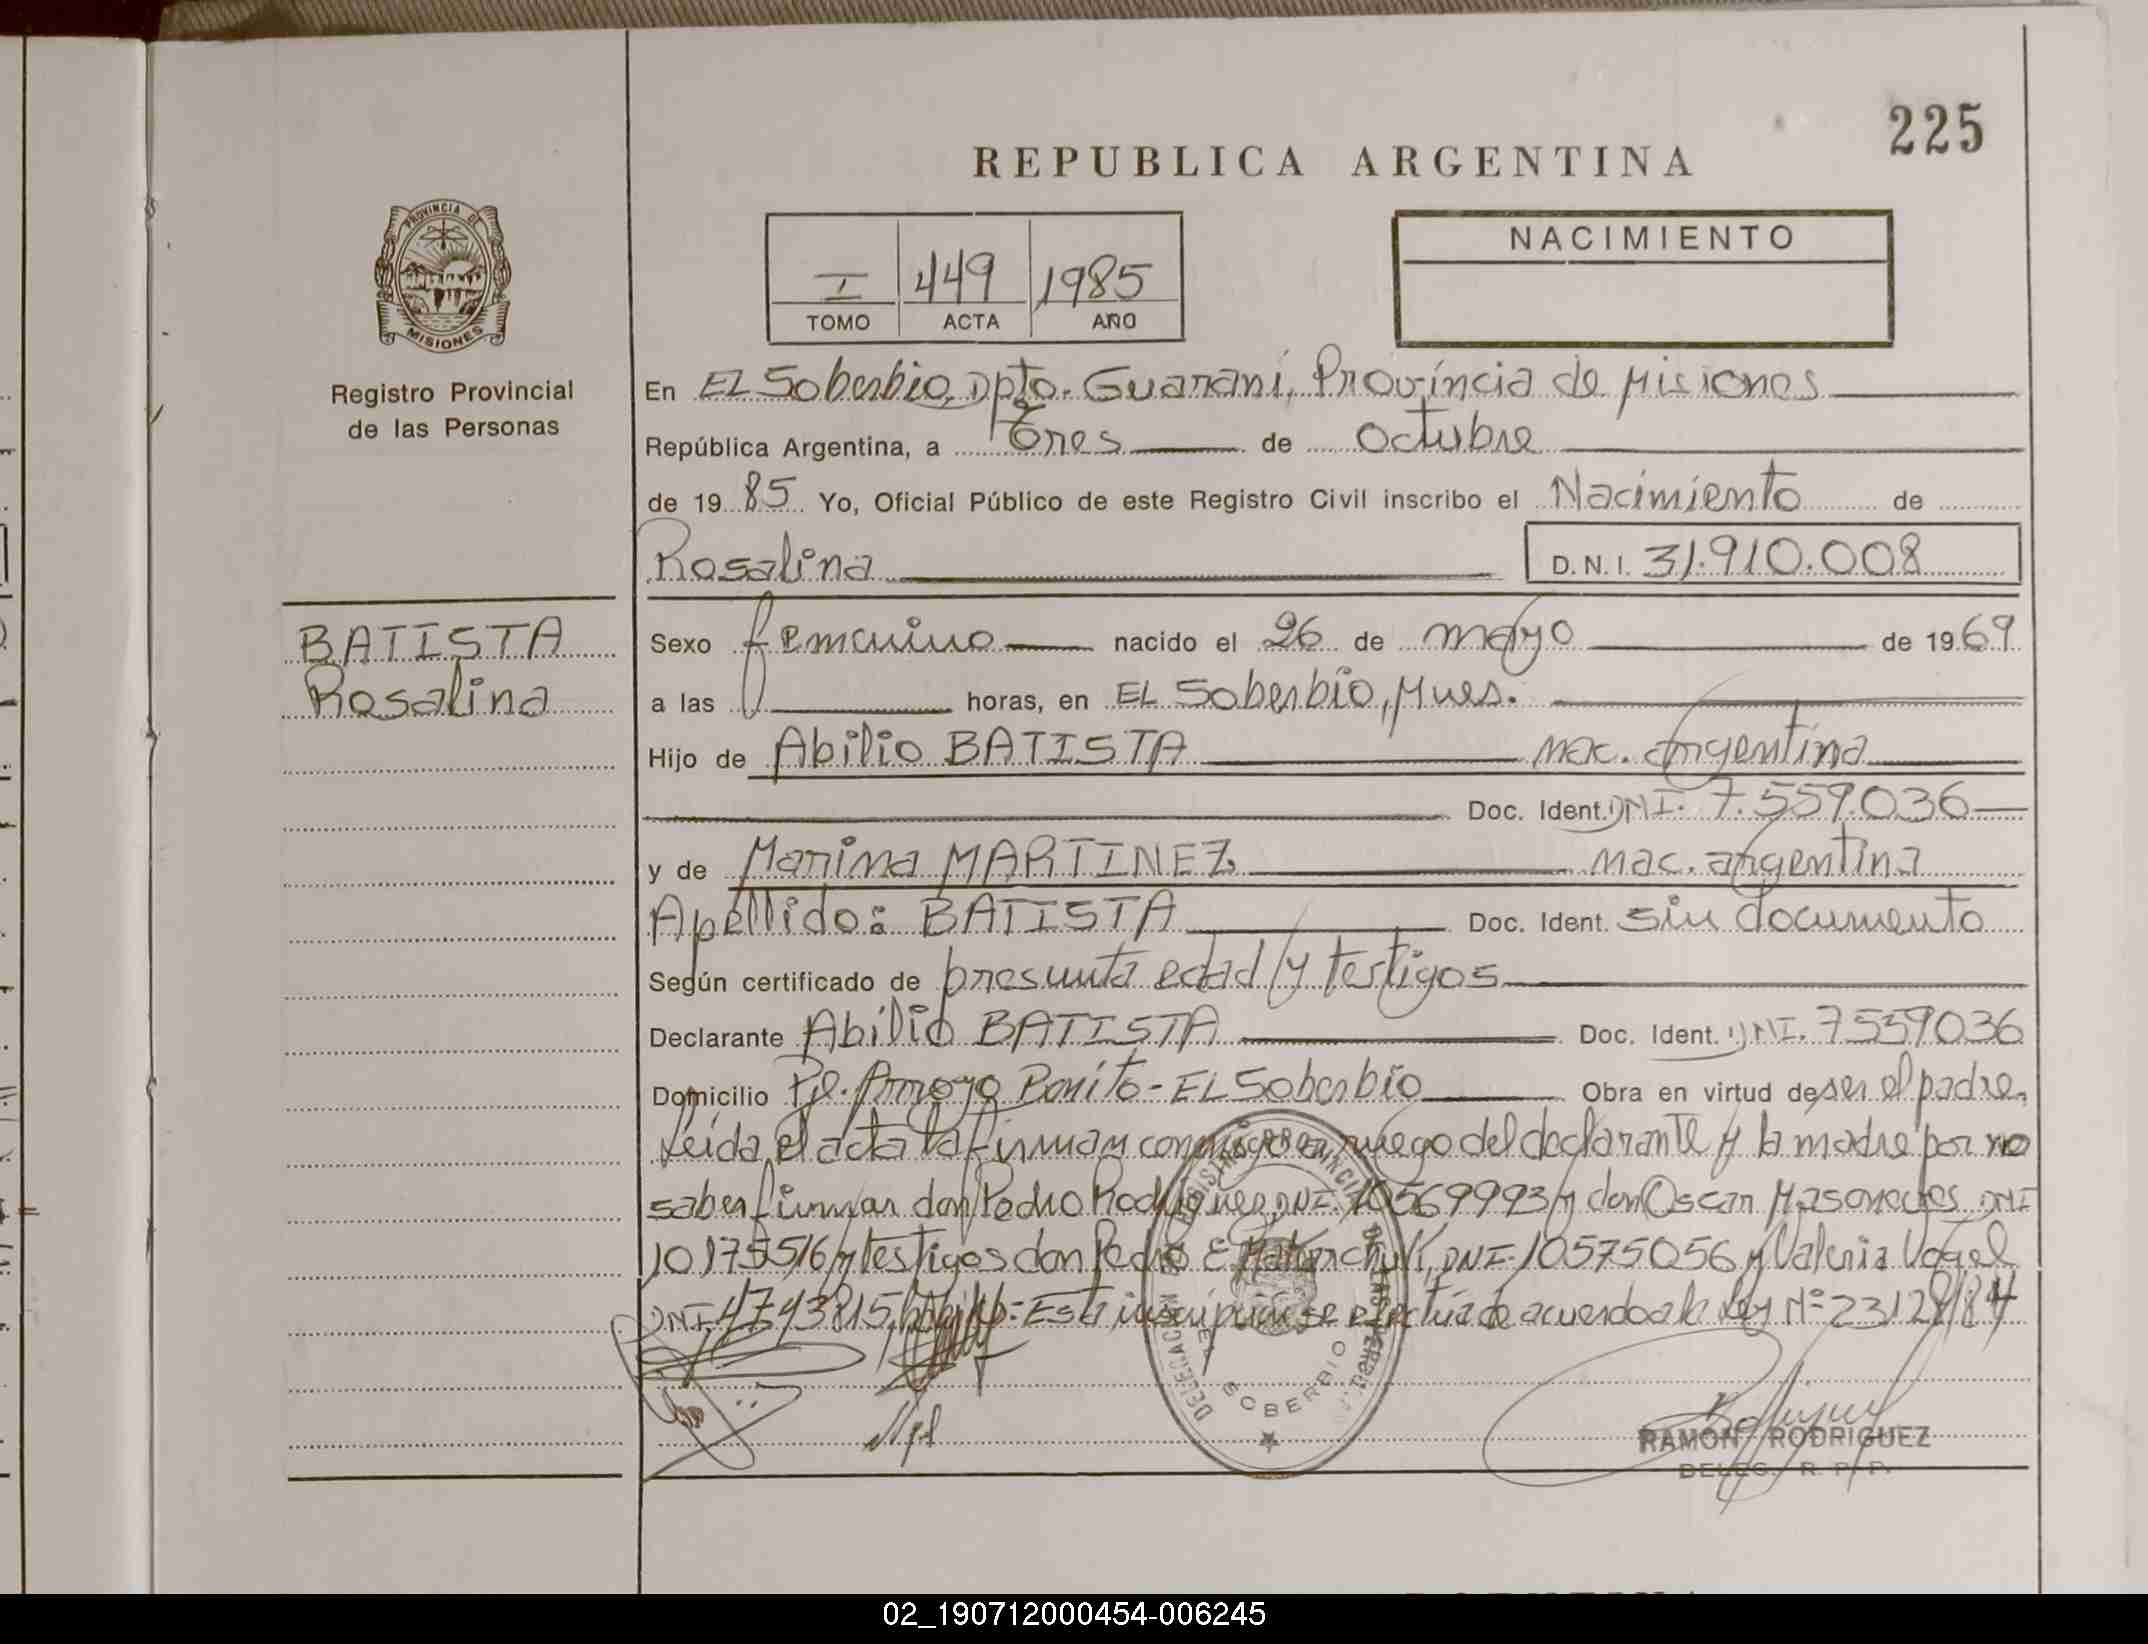 225
REPUBLICA ARGENTINA
PROVINCIA DE
MISIONES
Registro Provincial
de las Personas
I 449 1985
TOMO ACTA AÑO
NACIMIENTO
En EL Soberbio, Dpto. Guarani, Província de Misiones
República Argentina, a Tres de Octubre
de 1985 Yo, Oficial Público de este Registro Civil inscribo el Nacimiento de
Rosalina D.N.I. 31.910.008
BATISTA
Rosalina
Sexo femenino nacido el 26 de mayo de 1969
a las horas, en EL Soberbio, Mnes.
Hijo de Abilio BATISTA nac. argentina
Doc. Ident. DNI. 7.559.036
y de Marina MARTINEZ nac. argentina
Apellido: BATISTA Doc. Ident. sin documento
Según certificado de presunta edad y testigos
Declarante Abilio BATISTA Doc. Ident. DNI. 7559036
Domicilio Pje. Arroyo Bonito - EL Soberbio Obra en virtud de ser el padre,
Leída el acta la firman conmigo a ruego del declarante y la madre por no
saber firmar don Pedro Rodriguez, DNI. 10569993 y don Oscar DNI
10175516 y testigos don Pedro E. DNI. 10575056 y Valeria Vogel
DNI. 4743815, Esta inscripcion se efectúa de acuerdo a la Ley Nº 23128/84
DELEGACION EL SOBERBIO
REGISTRO PROVINCIAL DE LAS PERSONAS
RAMON RODRIGUEZ
DELEG. R. P. P.
02_190712000454-006245